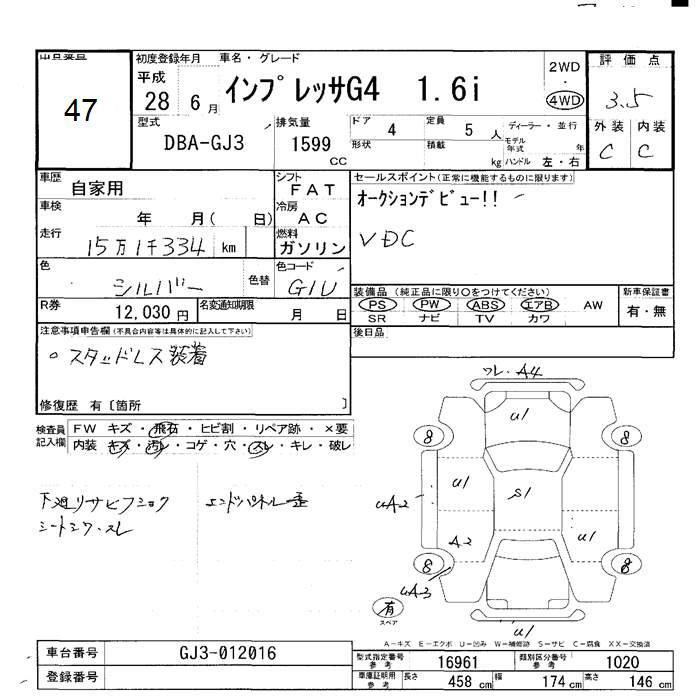 初度登録年月 車名・グレード
評価点
47
平成
28 年 6 月
インプレッサG4 1.6i
2WD
・
4WD
3.5
型式
DBA-GJ3
排気量
1599
CC
ドア
4
定員
5 人
ディーラー・並行
形状
積載
kg
モデル年式
年
ハンドル 左・右
外装 内装
C C
車歴
自家用
シフト
FAT
セールスポイント(正常に機能するものに限ります)
オークションデビュー!!
VDC
車検
年 月( 日)
冷房
AC
走行
15万1千334 km
燃料
ガソリン
色
シルバー
色替
色コード
G1U
装備品 (純正品に限り〇をつけてください)
PS PW ABS エアB AW
SR ナビ TV カワ
新車保証書
有・無
R券
12,030 円
名変通知期限
月 日
後日品
注意事項申告欄(不具合内容等は具体的に記入して下さい)
○スタッドレス装着
修復歴 有〔箇所 〕
検査員記入欄
FW キズ・飛石・ヒビ割・リペア跡・×要
内装 キズ・汚レ・コゲ・穴・スレ・キレ・破レ
下廻リサビフショク
エンドパネル歪
シートシワ・スレ
ワレ・A4
U1
8
8
U1
S1
UA2
A2
U1
8
8
UA3
有
スペア
U1
A－キズ E－エクボ U－凹み W－補修跡 S－サビ C－腐食 XX－交換済
車台番号
GJ3-012016
登録番号
型式指定番号
参考
16961
類別区分番号
参考
1020
車庫証明用
参考
長さ
458 cm
幅
174 cm
高さ
146 cm